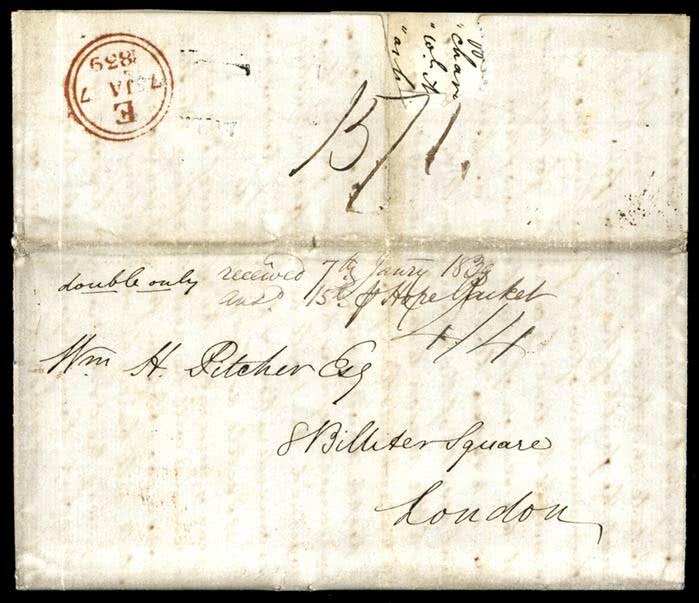 E
7 JA 7
1839
15/1.
double only received 7th Janry 1839
ansd 15th Hope Packet
4/4
Wm H. Pitcher Esq
8 Billiter Square
London